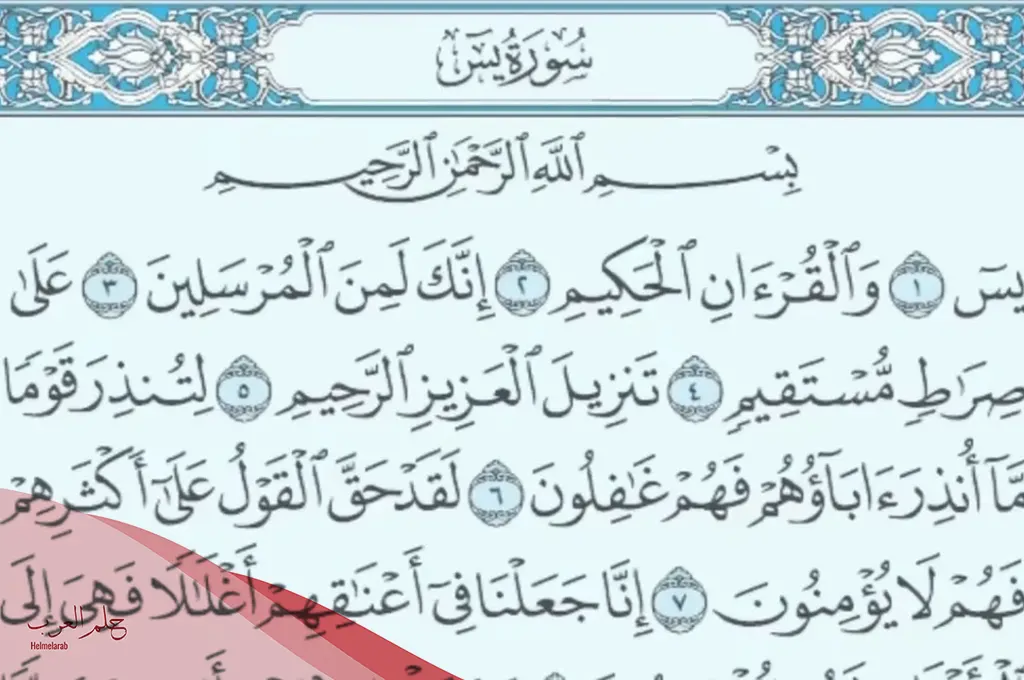 سُورَةُ يسٓ
بِسْمِ ٱللَّهِ ٱلرَّحْمَٰنِ ٱلرَّحِيمِ
يسٓ ١ وَٱلْقُرْءَانِ ٱلْحَكِيمِ ٢ إِنَّكَ لَمِنَ ٱلْمُرْسَلِينَ ٣ عَلَىٰ
صِرَٰطٍ مُّسْتَقِيمٍ ٤ تَنزِيلَ ٱلْعَزِيزِ ٱلرَّحِيمِ ٥ لِتُنذِرَ قَوْمًا
مَّآ أُنذِرَ ءَابَآؤُهُمْ فَهُمْ غَٰفِلُونَ ٦ لَقَدْ حَقَّ ٱلْقَوْلُ عَلَىٰٓ أَكْثَرِهِمْ
فَهُمْ لَا يُؤْمِنُونَ ٧ إِنَّا جَعَلْنَا فِىٓ أَعْنَٰقِهِمْ أَغْلَٰلًا فَهِىَ إِلَى
حلم العرب
Helmelarab